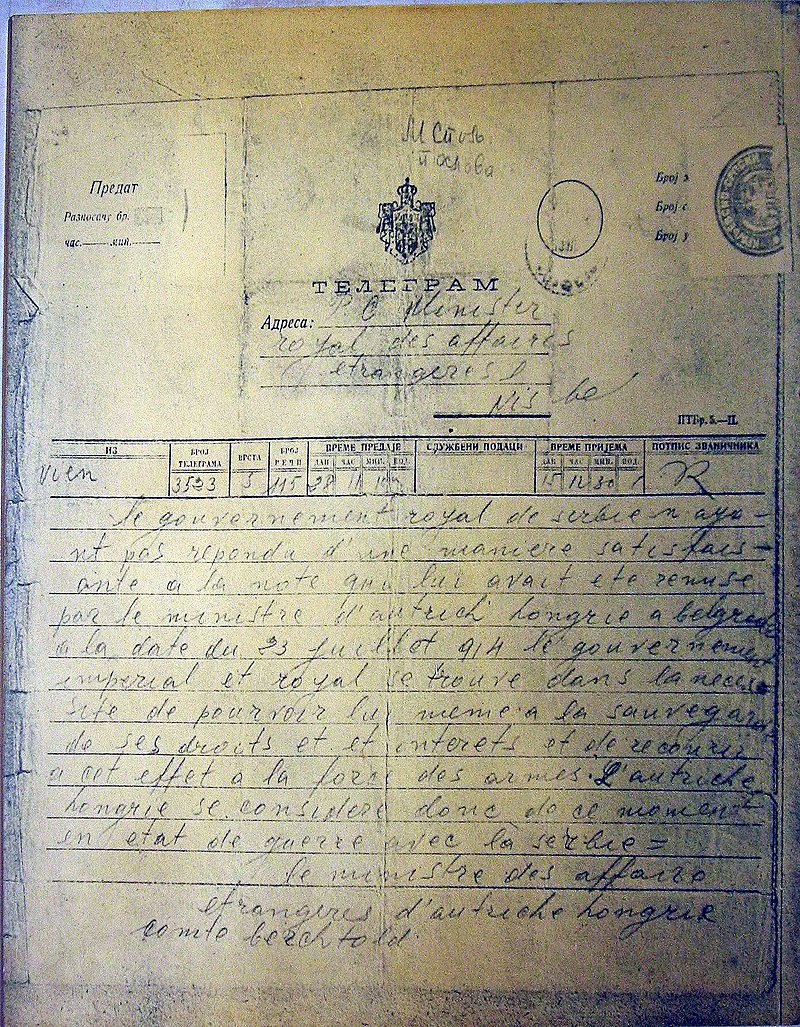 Предат
Разносачу бр.
час. мин.
Број
Број
Број
ТЕЛЕГРАМ
Адреса: Minister
royal des affaires
etrangeres
ПТБр. 5.—II.
ИЗ БРОЈ ТЕЛЕГРАМА ВРСТА БРОЈ РЕЧИ ВРЕМЕ ПРЕДАЈЕ СЛУЖБЕНИ ПОДАЦИ ВРЕМЕ ПРИЈЕМА ПОТПИС ЗВАНИЧНИКА
ДАН ЧАС МИН. ПОД. ДАН ЧАС МИН. ПОД.
vien 3523 5 115 28 11
le gouvernement royal de serbie n aya-
nt pas repondu d'une maniere satisfais-
ante a la note qui lui avait ete remise
par le ministre d'autrich hongrie a belgrade
a la date du 23 juillet 914 le gouvernement
imperial et royal se trouve dans la neces-
site de pourvoir lui meme a la sauvegarde
de ses droits et et interets et de recourir
a cet effet a la force des armes. L'autriche
hongrie se considere donc de ce moment
en etat de guerre avec la serbie =
le ministre des affaire
etrangeres d'autriche hongrie
comte berchtold.